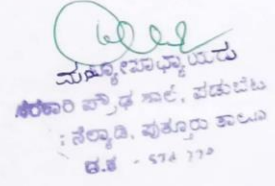 ಮುಖ್ಯೋಪಾಧ್ಯಾಯರು
ಸರಕಾರಿ ಪ್ರೌಢ ಶಾಲೆ, ಪಡುಬೆಟ್ಟು
: ನೆಲ್ಯಾಡಿ, ಪುತ್ತೂರು ತಾಲೂ
ದ.ಕ - 574